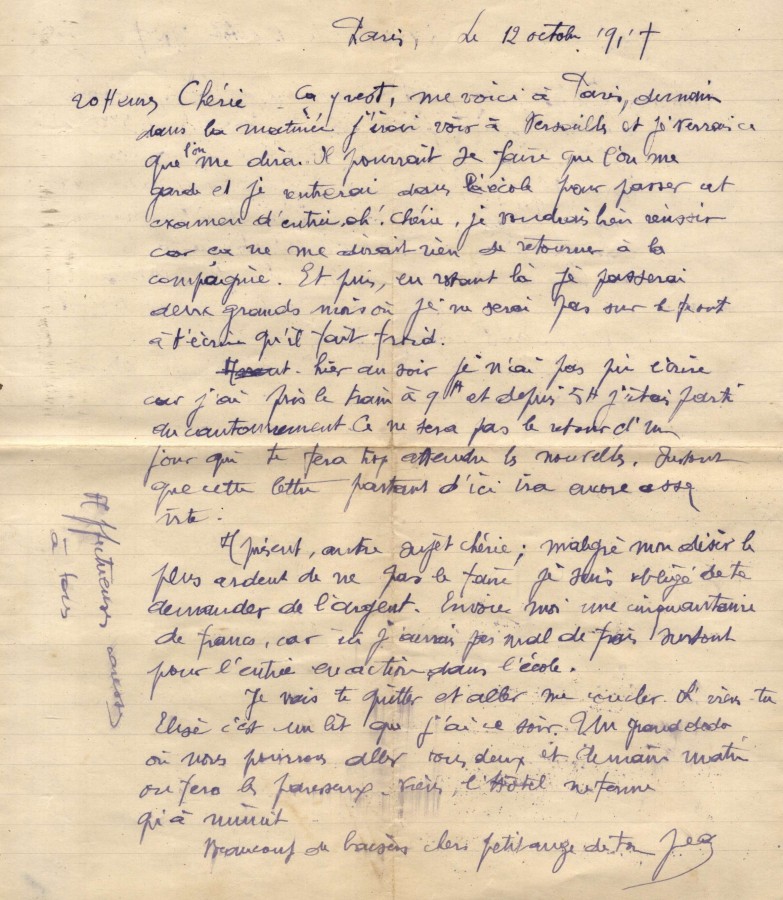 Paris, le 12 octobre 1917
20 Heures Chérie Ça y est, me voici à Paris, demain
dans la matinée j'irai voir à Versailles et je verrai ce
que l'on me dira. Il pourrait se faire que l'on me
garde et je rentrerai dans l'école pour passer cet
examen d'entrée, oh! Chérie, je voudrais bien réussir
car ça ne me dirait rien de retourner à la
compagnie. Et puis, en restant là je passerai
deux grands mois où je ne serai pas sur le front
à t'écrire qu'il fait froid.
hier au soir je n'ai pas pu écrire
car j'ai pris le train à 9H et depuis 5H j'étais parti
du cantonnement Ce ne sera pas le retour d'un
jour qui te fera trop attendre les nouvelles. Surtout
que cette lettre partant d'ici ira encore assez
vite.
A présent, autre sujet chérie; malgré mon désir le
plus ardent de ne pas le faire je suis obligé de te
demander de l'argent. Envoie moi une cinquantaine
de francs, car ici j'aurais pas mal de frais surtout
pour l'entrée en action dans l'école.
Je vais te quitter et aller me coucher. viens-tu
Elisé c'est un lit que j'ai ce soir. Un grand dodo
où nous pourrons aller tous deux et demain matin
on fera les paresseux. viens, l'Hôtel ne ferme
qu'à minuit
Beaucoup de baisers chers petit ange de ton Jean
Affectueuses caresses
à tous